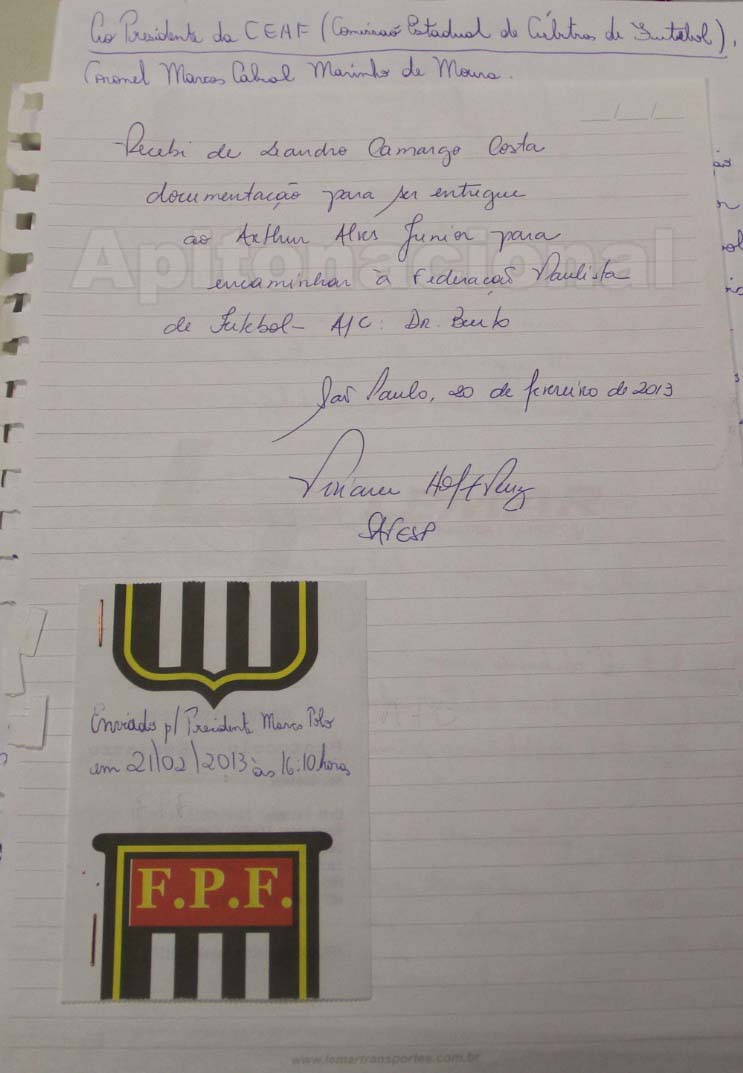 Ao Presidente da CEAF (Comissão Estadual de Árbitros de Futebol),
Coronel Marcos Cabral Marinho de Moura.
__/__/__
Recebi de Leandro Camargo Costa
documentação para ser entregue
ao Arthur Alves Junior para
Apitonacional
encaminhar à Federação Paulista
de Futebol - A/C: Dr.
São Paulo, 20 de fevereiro de 2013
SAFESP
Enviado p/ Presidente Marco Polo
em 21/02/2013 às 16:10 horas
F.P.F.
www.lemartransportes.com.br